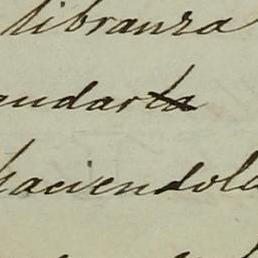 libranza
audarla
haciendola